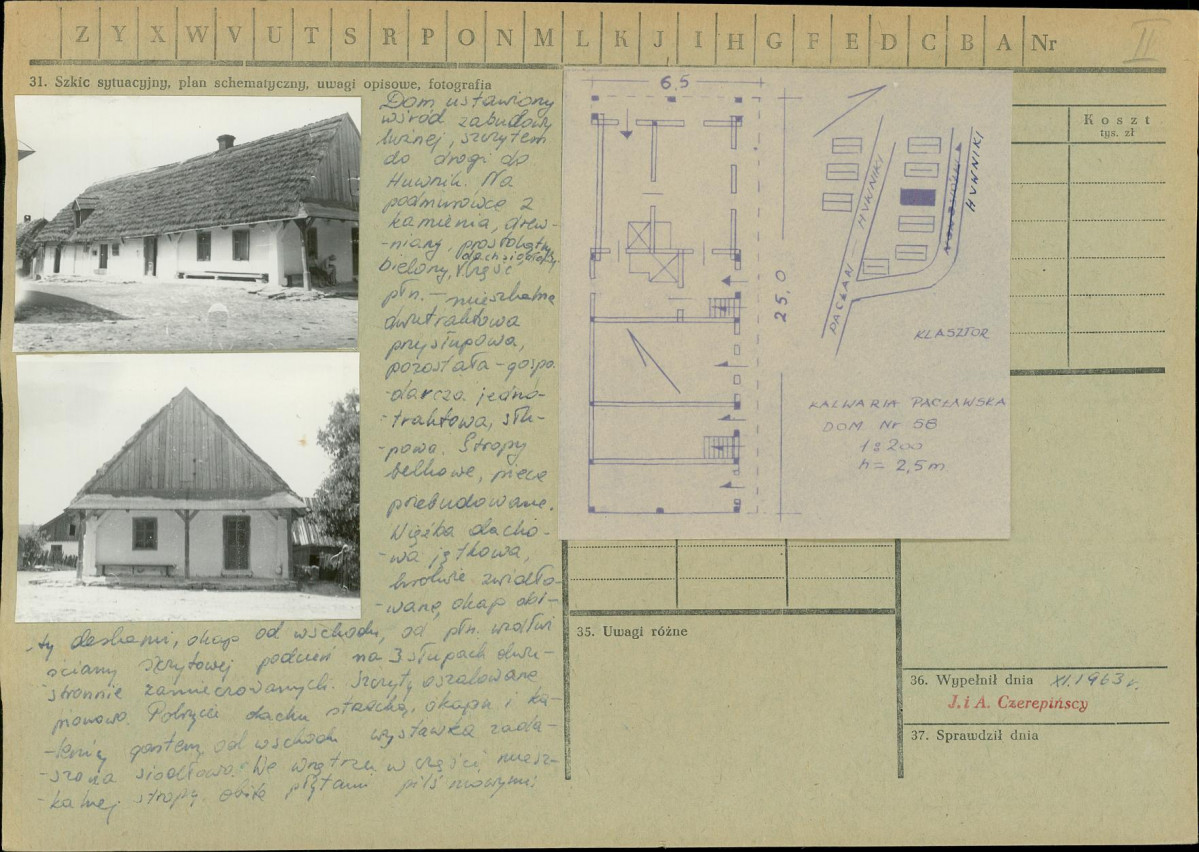 Z Y X W V U T S R P O N M L K J I H G F E D C B A Nr
II
31. Szkic sytuacyjny, plan schematyczny, uwagi opisowe, fotografia
Dom ustawiony
wśród zabudowy
luźnej, szczytem
do drogi do
Huwnik. Na
podmurówce z
kamienia, drew-
-niany, prostokątny,
bielony, dach siodłowy. Część
płn. – mieszkalna
dwutraktowa
przysłupowa,
pozostała – gospo-
-darcza jedno-
-traktowa, słu-
-powa. Stropy
belkowe, piece
przebudowane.
Więźba dacho-
-wa jętkowa,
krokwie
-wane, okap obi-
-ty deskami, okap od wschodu, od płn. wzdłuż
ściany szczytowej podcień na 3 słupach dwu-
-stronnie zamieczowanych. Szczyty oszalowane
pionowo. Pokrycie dachu strzechą, okapu i ka-
od wschodu wystawka zada-
-szona siodłowo. We wnętrzu w części miesz-
-kalnej stropy obite płytami pilśniowymi.
6,5
25,0
PACŁAW — HUWNIKI
HUWNIKI
KLASZTOR
KALWARIA PACŁAWSKA
DOM Nr 58
1:200
h = 2,5m
Koszt
tys. zł
35. Uwagi różne
36. Wypełnił dnia XI.1963 r.
J. i A. Czerepińscy
37. Sprawdził dnia